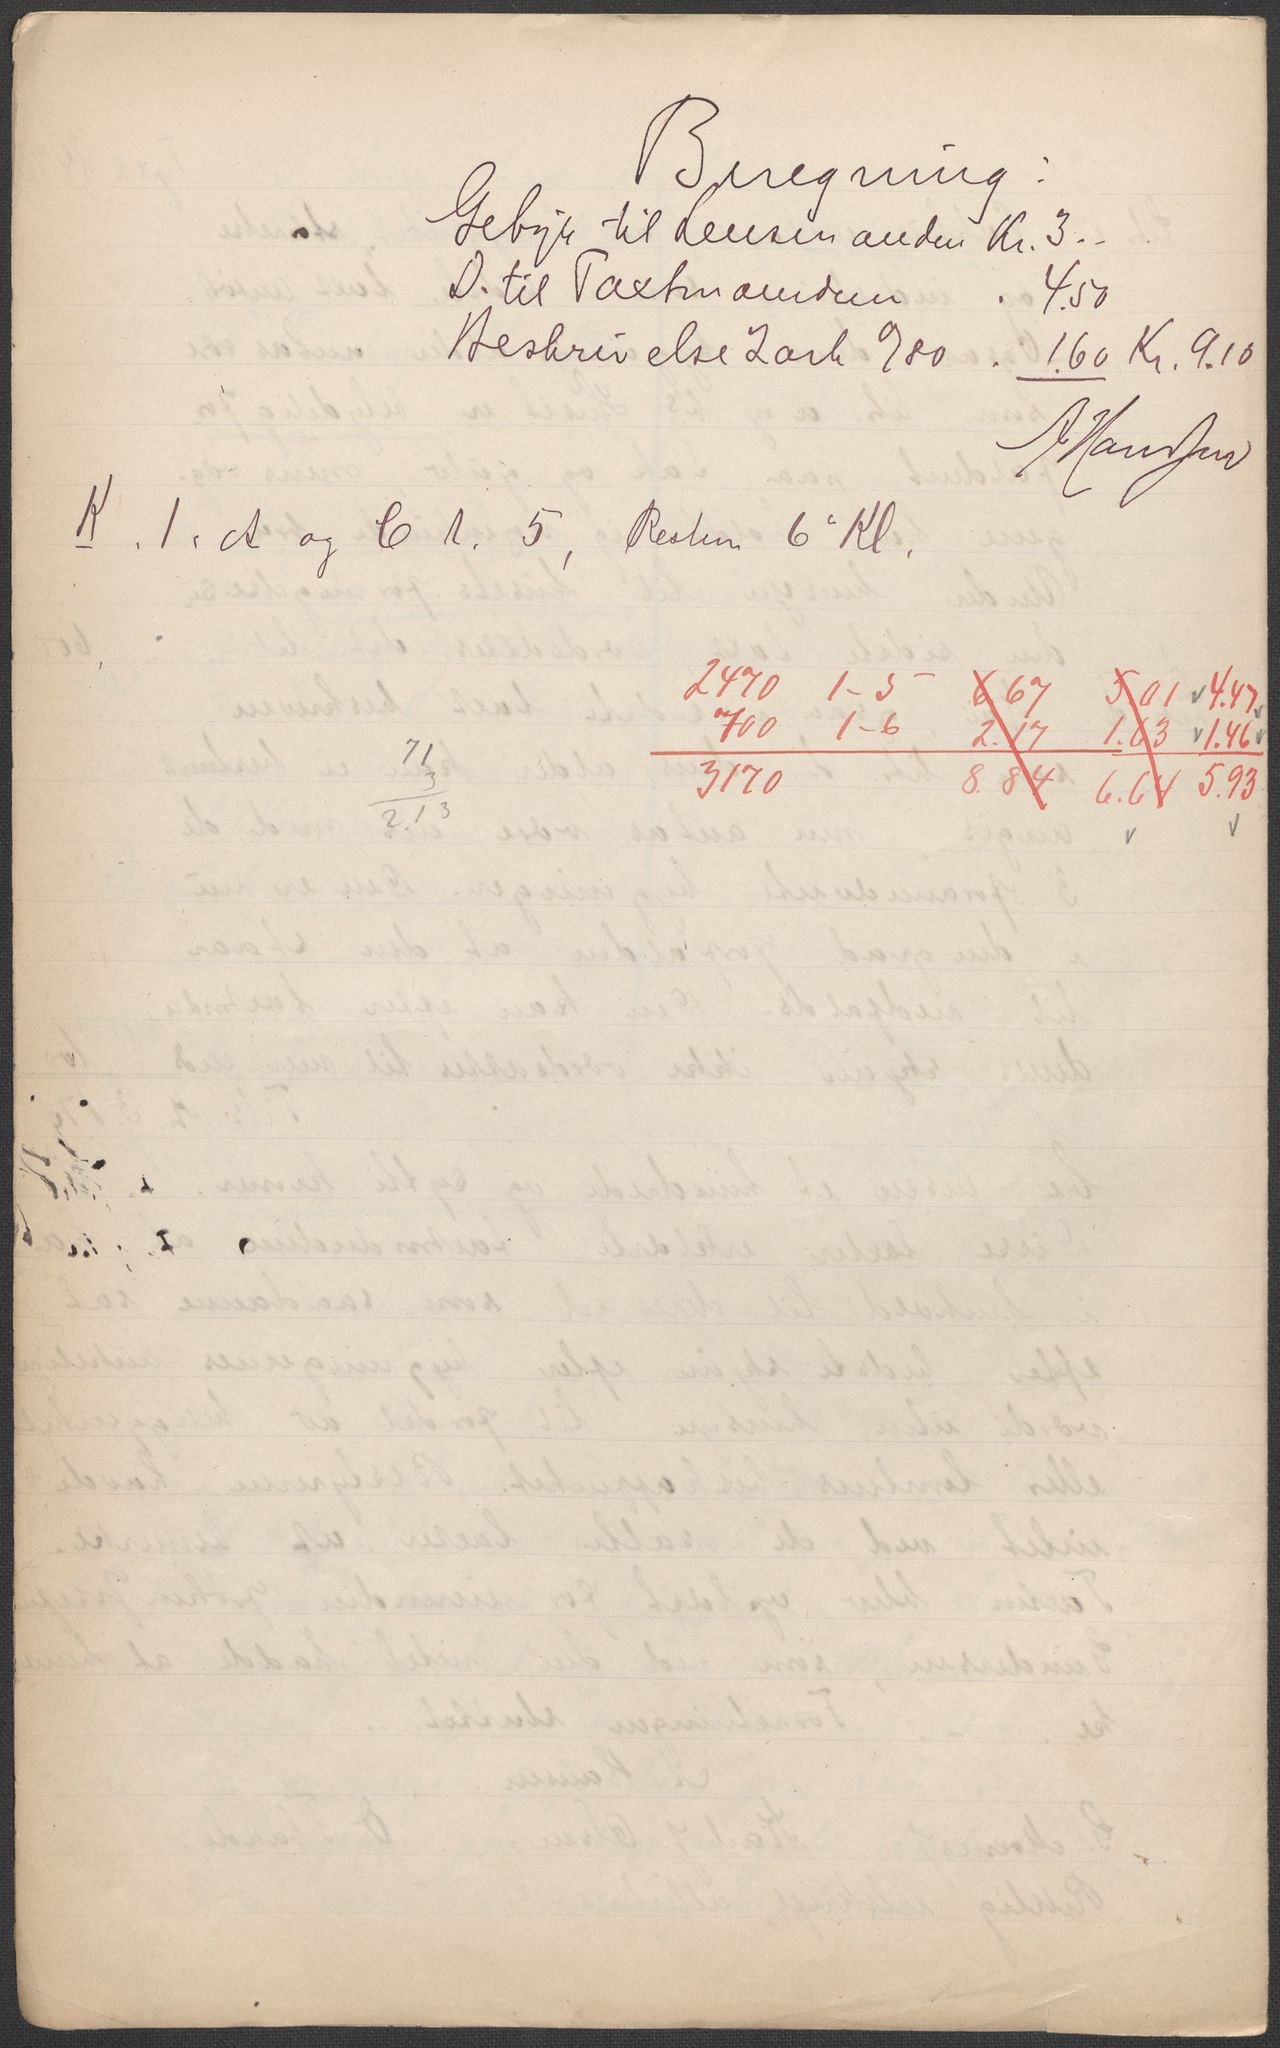 Beregning:
Gebyr til Lensmanden Kr. 3.-
D. til Taxtmændene . 4.50
Beskrivelse 2 ark à 80 . 1.60 Kr. 9.10
A Hansen
K. 1. A og C t. 5, Resten 6' Kl.
2470 1-5 6 67 5.01 4.47
700 1-6 2.17 1.63 1.46
3170 8.84 6.64 5.93
71
3
2.13